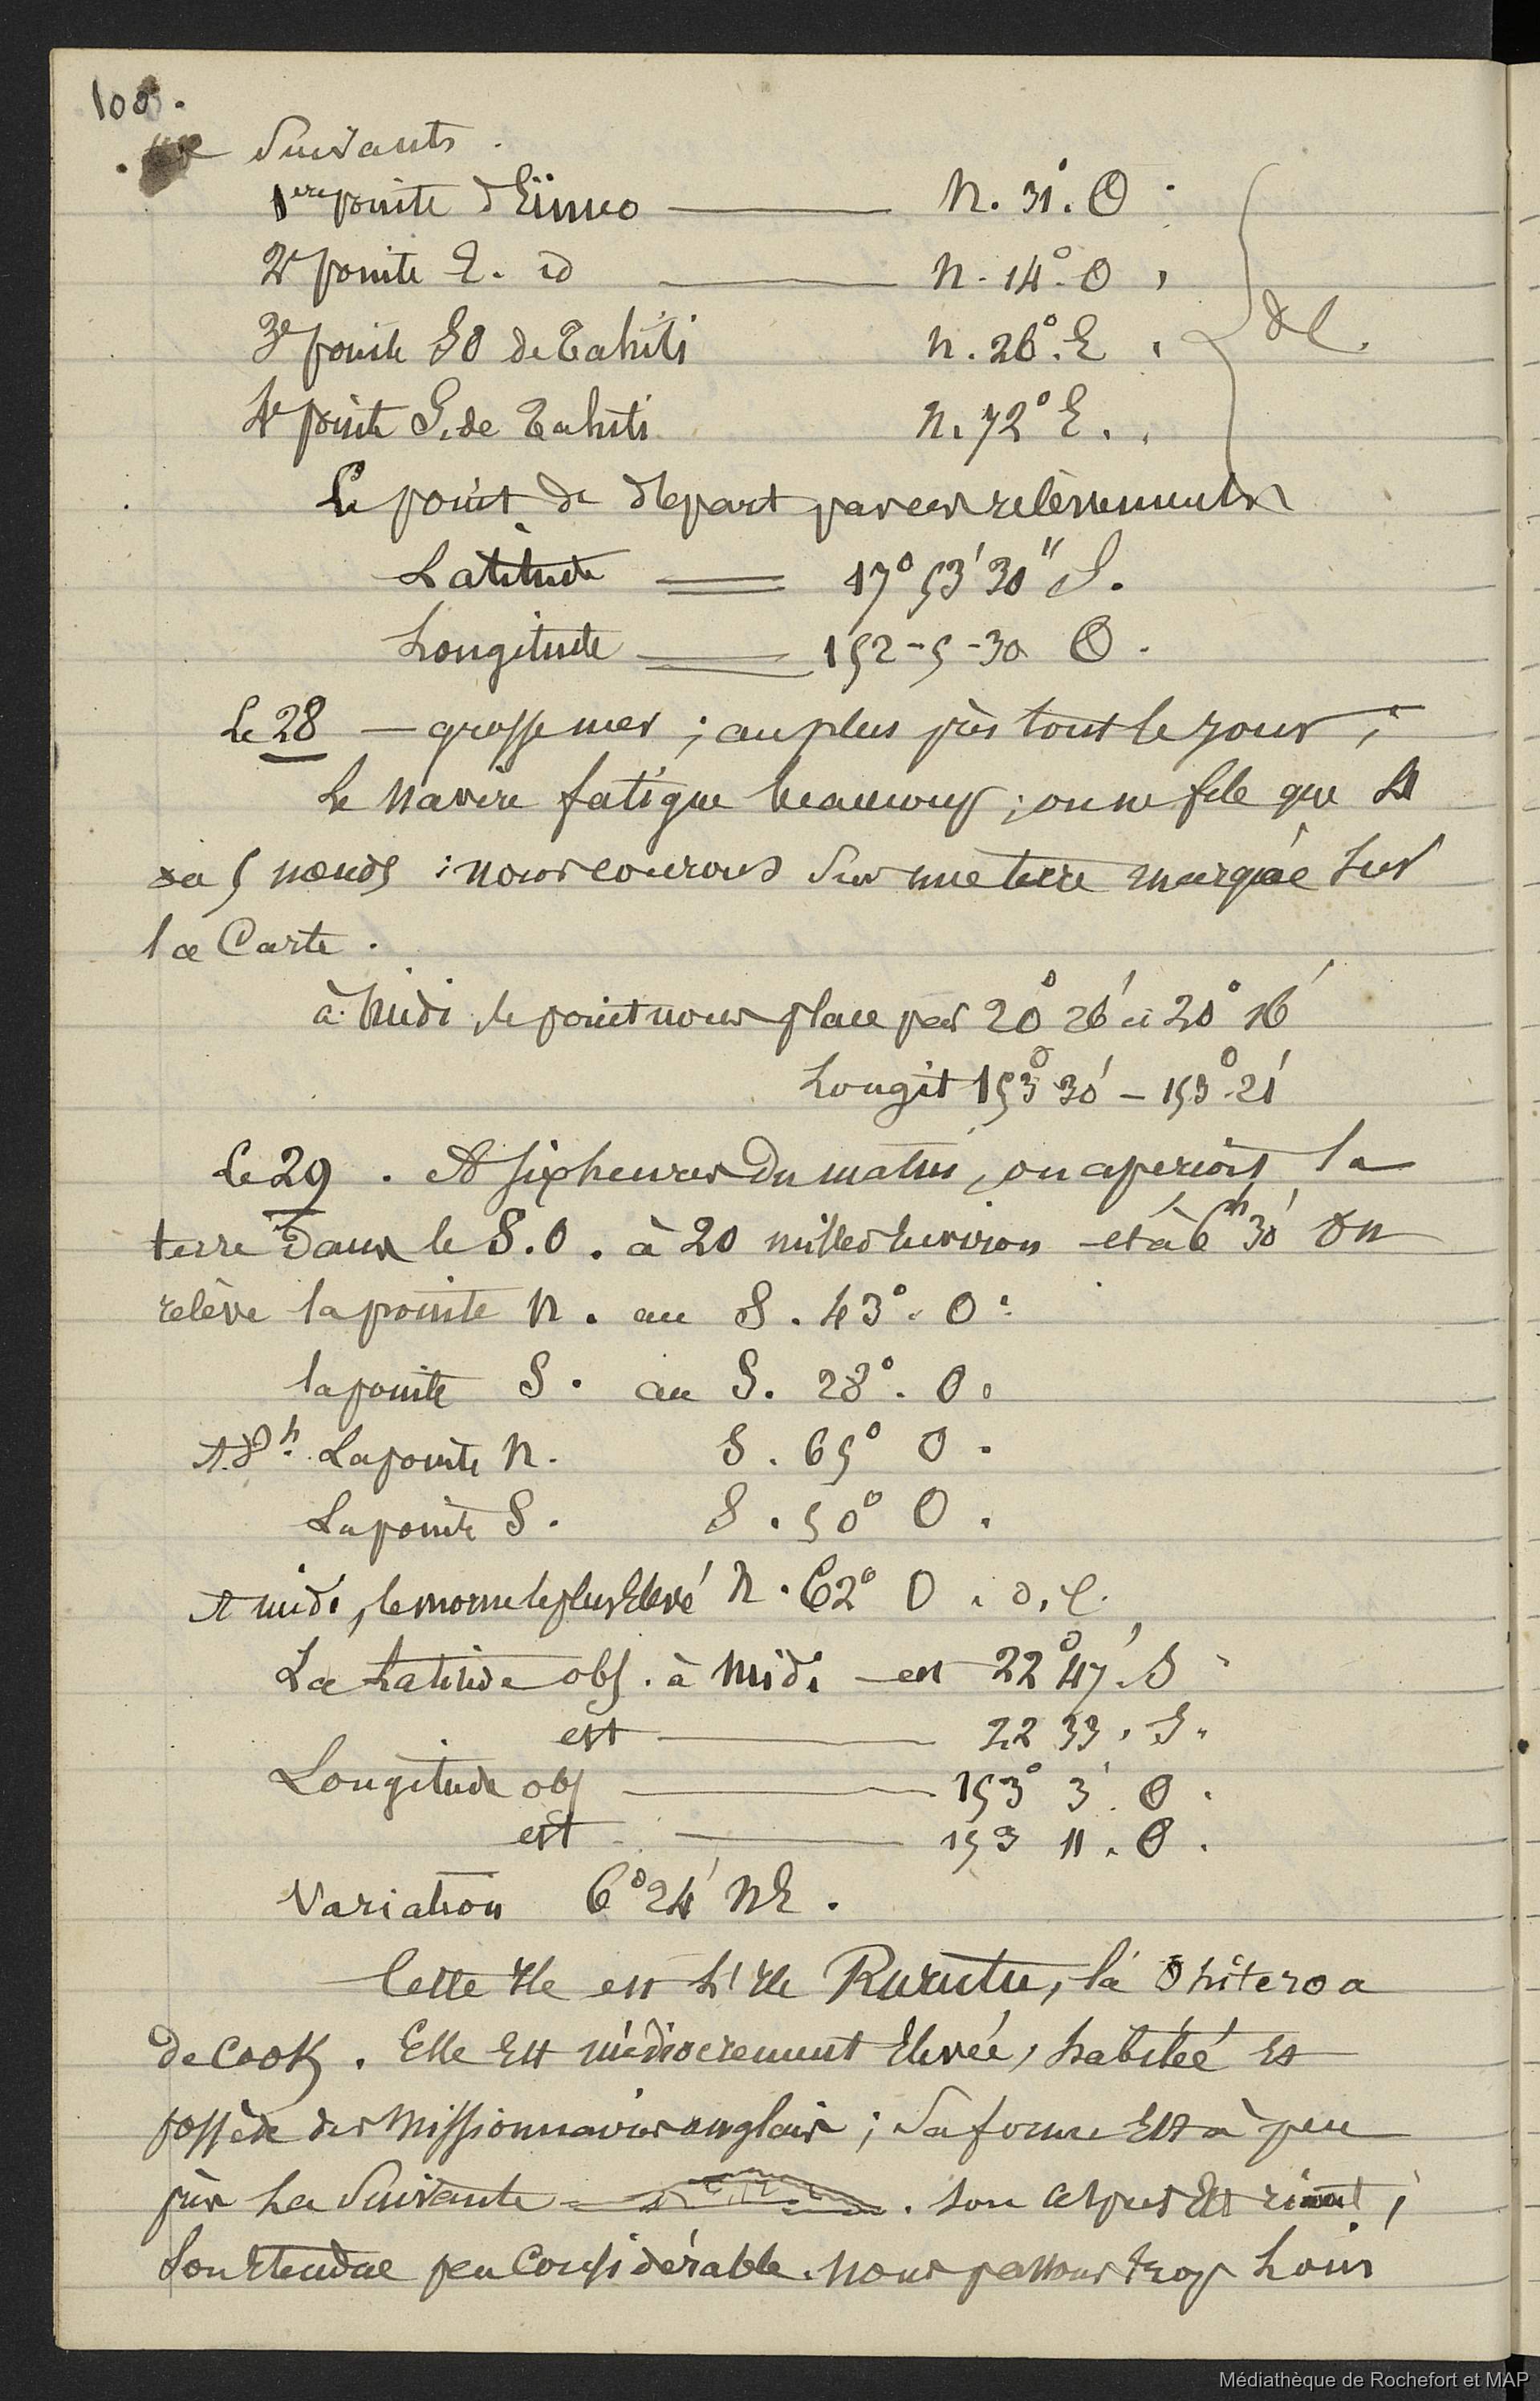 108.
Suivants.
1ere pointe d'Eïmeo —— N. 31°. O.
2e pointe E. id —— N. 14°. O.
3e pointe SO de Tahiti N. 26°. E.
4e pointe S. de Tahiti N. 72° E.
dC.
Le point de départ par ces relèvements
Latitude == 17° 53' 30" S.
Longitude == 152-5-30 O.
Le 28 — grosse mer ; au plus près tout le jour ;
Le Navire fatigue beaucoup ; on ne file que 4
à 5 nœuds : nous courons sur une terre marquée sur
la Carte.
à Midi, le point nous place par 20° 26' à 20° 16'
Longit 153° 30' — 153° 21'
Le 29. A six heures du matin, on aperçoit la
terre dans le S.O. à 20 milles Environ et à 6h 30' on
relève la pointe N. au S. 43°. O.
la pointe S. au S. 28°. O.
A 8h. La pointe N. S. 65° O.
La pointe S. S. 50° O.
A midi, le morne le plus Elevé N. 62° O. d.C.
La Latitude obs. à Midi — est 22° 47'. S
est —— 22 33. S.
Longitude obs —— 153° 3'. O.
est —— 153 11. O.
Variation 6° 24' NE.
Cette Ile est L'Ile Rurutu, la Ohiteroa
de Cook. Elle Est médiocrement Elevée, habitée Et
possède des Missionnaires anglais ; Sa forme Est à peu
près La Suivante. Son aspect Est riant ;
Son Etendue peu Considérable. Nous passons trop Loin